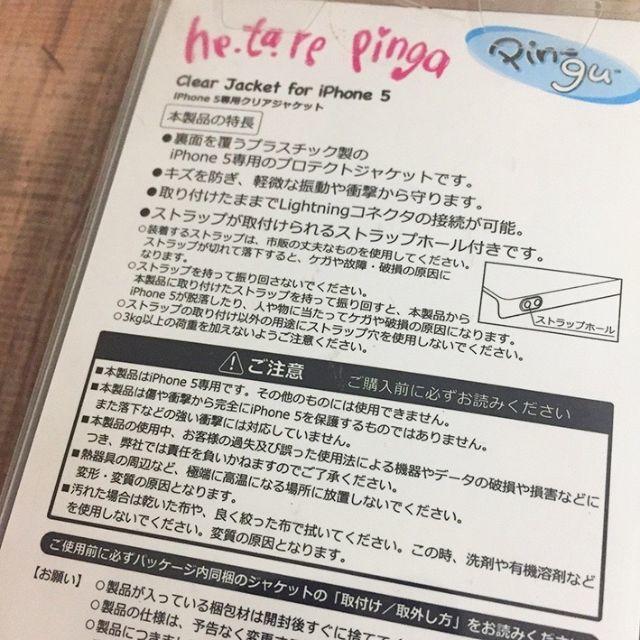 he.ta.re pinga
Pingu
Clear Jacket for iPhone 5
iPhone 5専用クリアジャケット
本製品の特長
●裏面を覆うプラスチック製の
iPhone 5専用のプロテクトジャケットです。
●キズを防ぎ、軽微な振動や衝撃から守ります。
●取り付けたままでLightningコネクタの接続が可能。
●ストラップが取付けられるストラップホール付きです。
○装着するストラップは、市販の丈夫なものを使用してください。
ストラップが切れて落下すると、ケガや故障・破損の原因に
なります。
○ストラップを持って振り回さないでください。
本製品に取り付けたストラップを持って振り回すと、本製品から
iPhone 5が脱落したり、人や物に当たってケガや破損の原因になります。
○ストラップの取り付け以外の用途にストラップ穴を使用しないでください。
○3kg以上の荷重を加えないようご注意ください。
ストラップホール
ご注意 ご購入前に必ずお読みください
■本製品はiPhone 5専用です。その他のものには使用できません。
■本製品は傷や衝撃から完全にiPhone 5を保護するものではありません。
また落下などの強い衝撃には対応していません。
■本製品の使用中、お客様の過失及び誤った使用法による機器やデータの破損や損害などに
つき、弊社では責任を負いかねますのでご了承ください。
■熱器具の周辺など、極端に高温になる場所に放置しないでください。
変形・変質の原因となります。
■汚れた場合は乾いた布や、良く絞った布で拭いてください。この時、洗剤や有機溶剤など
を使用しないでください。変質の原因となります。
ご使用前に必ずパッケージ内同梱のジャケットの「取付け／取外し方」をお読みくださ
【お願い】 ○製品が入っている梱包材は開封後すぐに捨てて
○製品の仕様は、予告なく変更する
○製品につきまし